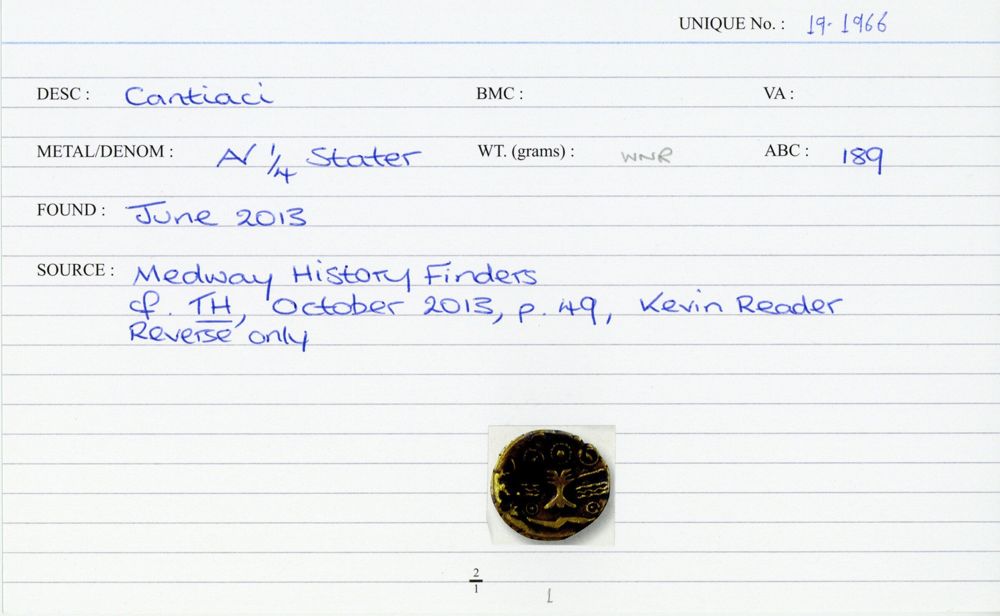 UNIQUE No. : 19-1966
DESC : Cantiaci BMC : VA :
METAL/DENOM : AV 1/4 Stater WT. (grams) : WNR ABC : 189
FOUND : June 2013
SOURCE : Medway History Finders
cf. TH, October 2013, p. 49, Kevin Reader
Reverse only
2/1
L